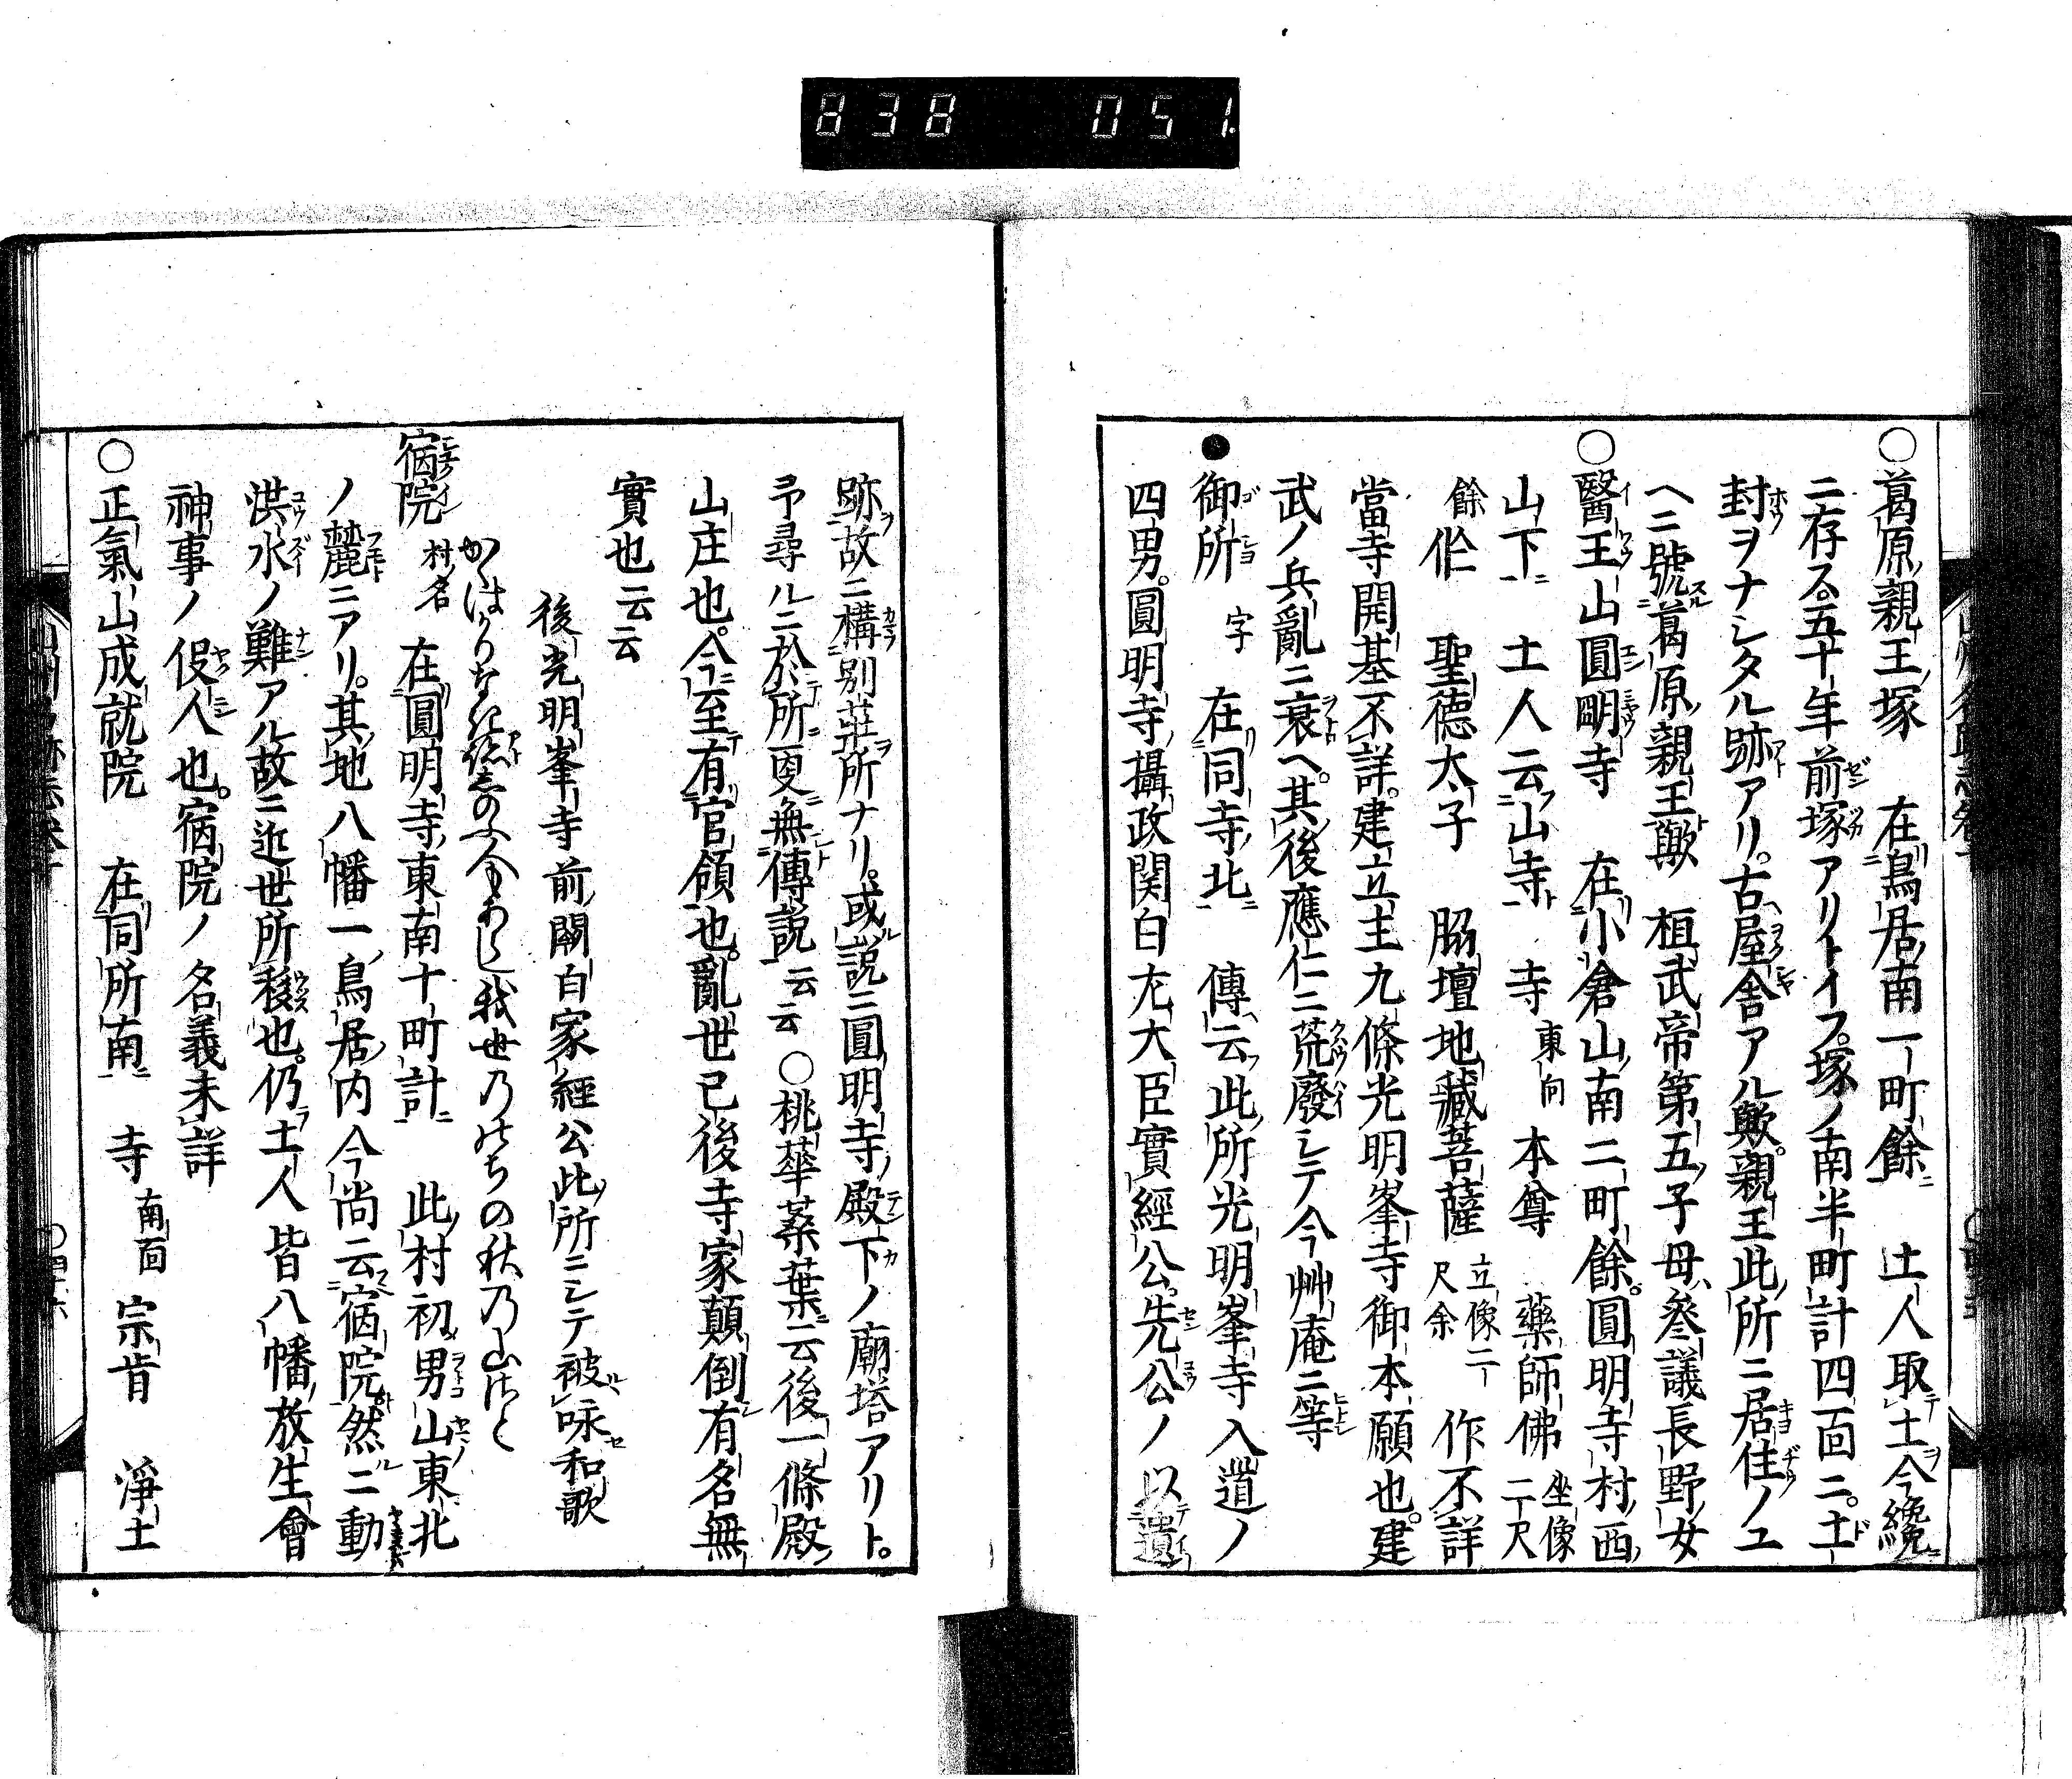 838 051
○葛原親王塚 在鳥居南一町餘 土人取土今纔
ニ存ス。五十年前塚アリトイフ。塚ノ南半町計四面ニ。土
封ヲナシタル跡アリ。古屋舎アル歟。親王此所ニ居住ノユ
ヘニ號葛原親王歟 桓武帝第五子母參議長野女
○醫王山圓明寺 在小倉山南二町餘。圓明寺村西
山下 土人云山寺 寺東向 本尊 藥師佛坐像二尺
餘作 聖德太子 脇壇地藏菩薩立像二尺余 作不詳
當寺開基不詳。建立主九條光明峯寺御本願也。建
武ノ兵亂ニ衰ヘ。其後應仁ニ荒廢シテ今艸庵ニ等
●御所 字 在同寺北 傳云此所光明峯寺入道ノ
四男。圓明寺攝政関白左大臣實經公。先公ノ以遺
跡故ニ構別莊所ナリ。或説ニ圓明寺殿下ノ廟塔アリト。
予尋ルニ於所更無傳説云云 ○桃華蘂葉云後一條殿
山庄也。今至有官領也。亂世已後寺家顛倒有名無
實也云云
後光明峯寺前關白家經公此所ニシテ被咏和歌
宿院村名 在圓明寺東南十町計 此村初男山東北
ノ麓ニアリ。其地八幡一鳥居内今尚云宿院然ニ動
洪水ノ難アル故ニ近世所移也。仍土人皆八幡放生會
神事ノ役人也。宿院ノ名義未詳
○正氣山成就院 在同所南 寺南面 宗肯 淨土